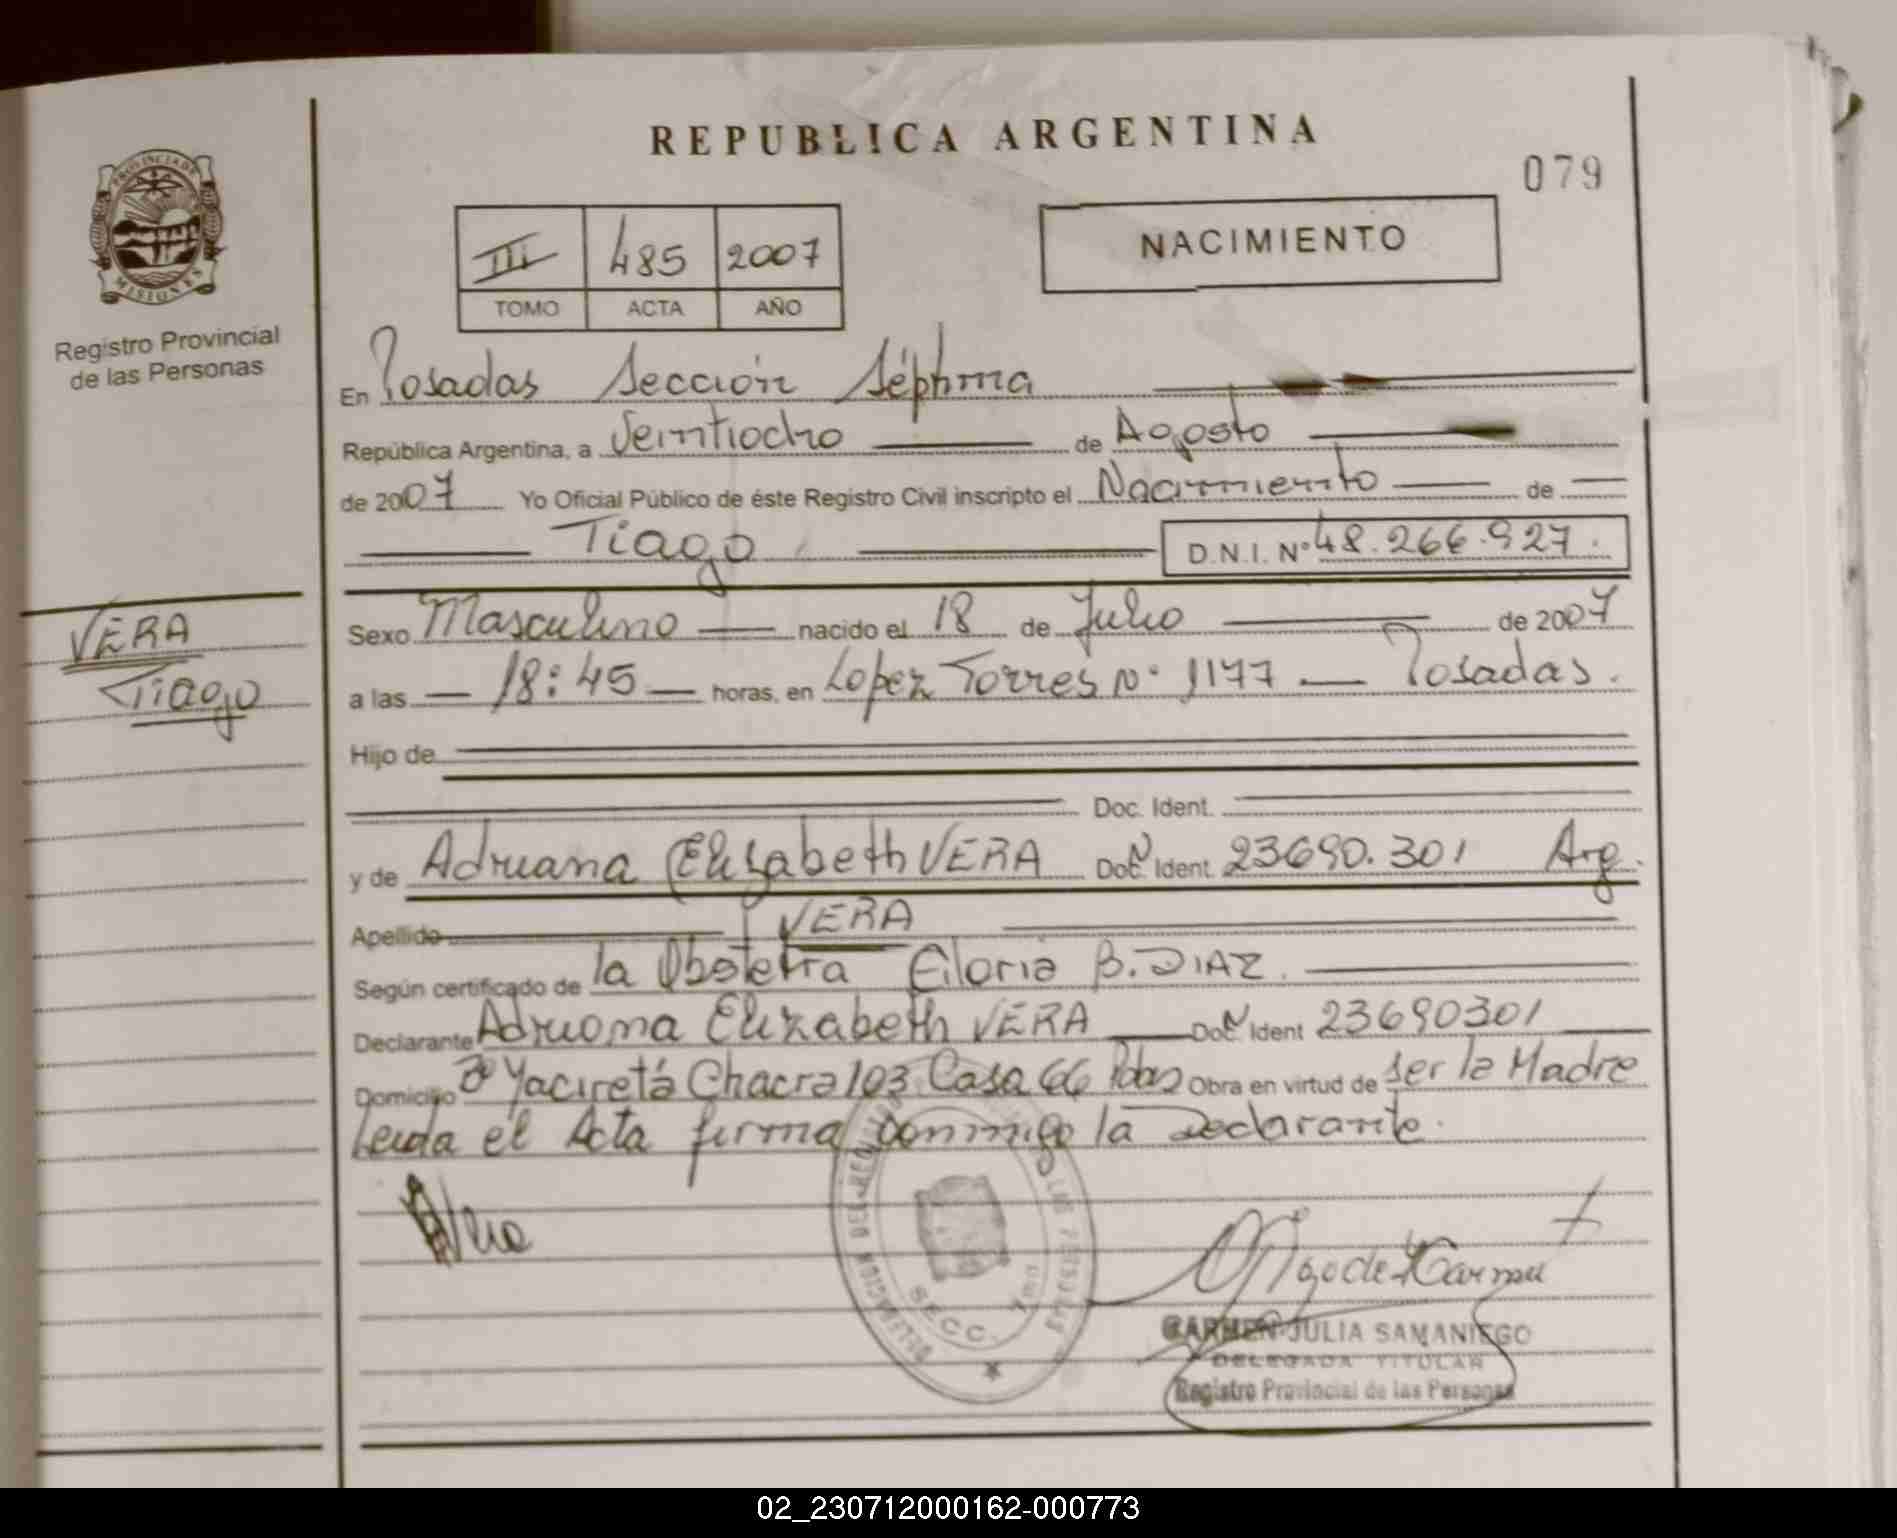 REPUBLICA ARGENTINA
079
PROVINCIA DE
MISIONES
Registro Provincial
de las Personas
III 485 2007
TOMO ACTA AÑO
NACIMIENTO
En Posadas Sección Séptima
República Argentina, a Veintiocho de Agosto
de 2007 Yo Oficial Público de éste Registro Civil inscripto el Nacimiento de
Tiago D.N.I. Nº 48.266.927.
VERA
Tiago
Sexo Masculino nacido el 18 de Julio de 2007
a las 18:45 horas, en Lopez Torres Nº 1177 — Posadas.
Hijo de
Doc. Ident.
y de Adriana Elizabeth VERA Doc. Ident. 23690.301 Arg.
Apellido VERA
Según certificado de la Obstetra Gloria B. DIAZ.
Declarante Adriana Elizabeth VERA Doc. Ident 23690301
Domicilio Bº Yaciretá Chacra 103 Casa 66 Pdas Obra en virtud de ser la Madre
Leida el Acta firma conmigo la Declarante.
Vera
DELEGACION DEL REGISTRO DE LAS PERSONAS
SECC. 7ma
CARMEN JULIA SAMANIEGO
DELEGADA TITULAR
Registro Provincial de las Personas
02_230712000162-000773